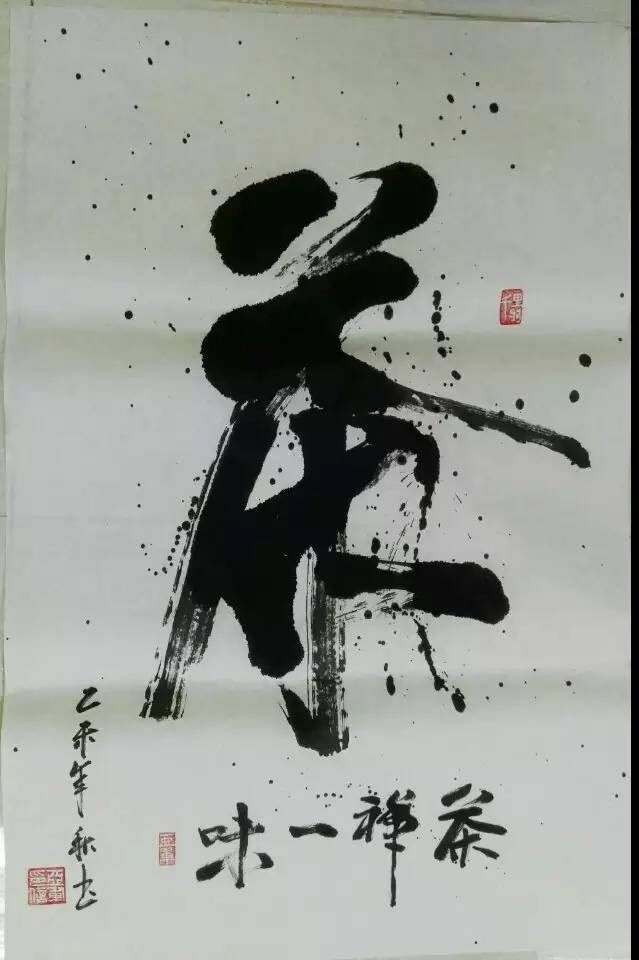 茶
茶禅一味
乙未年秋书